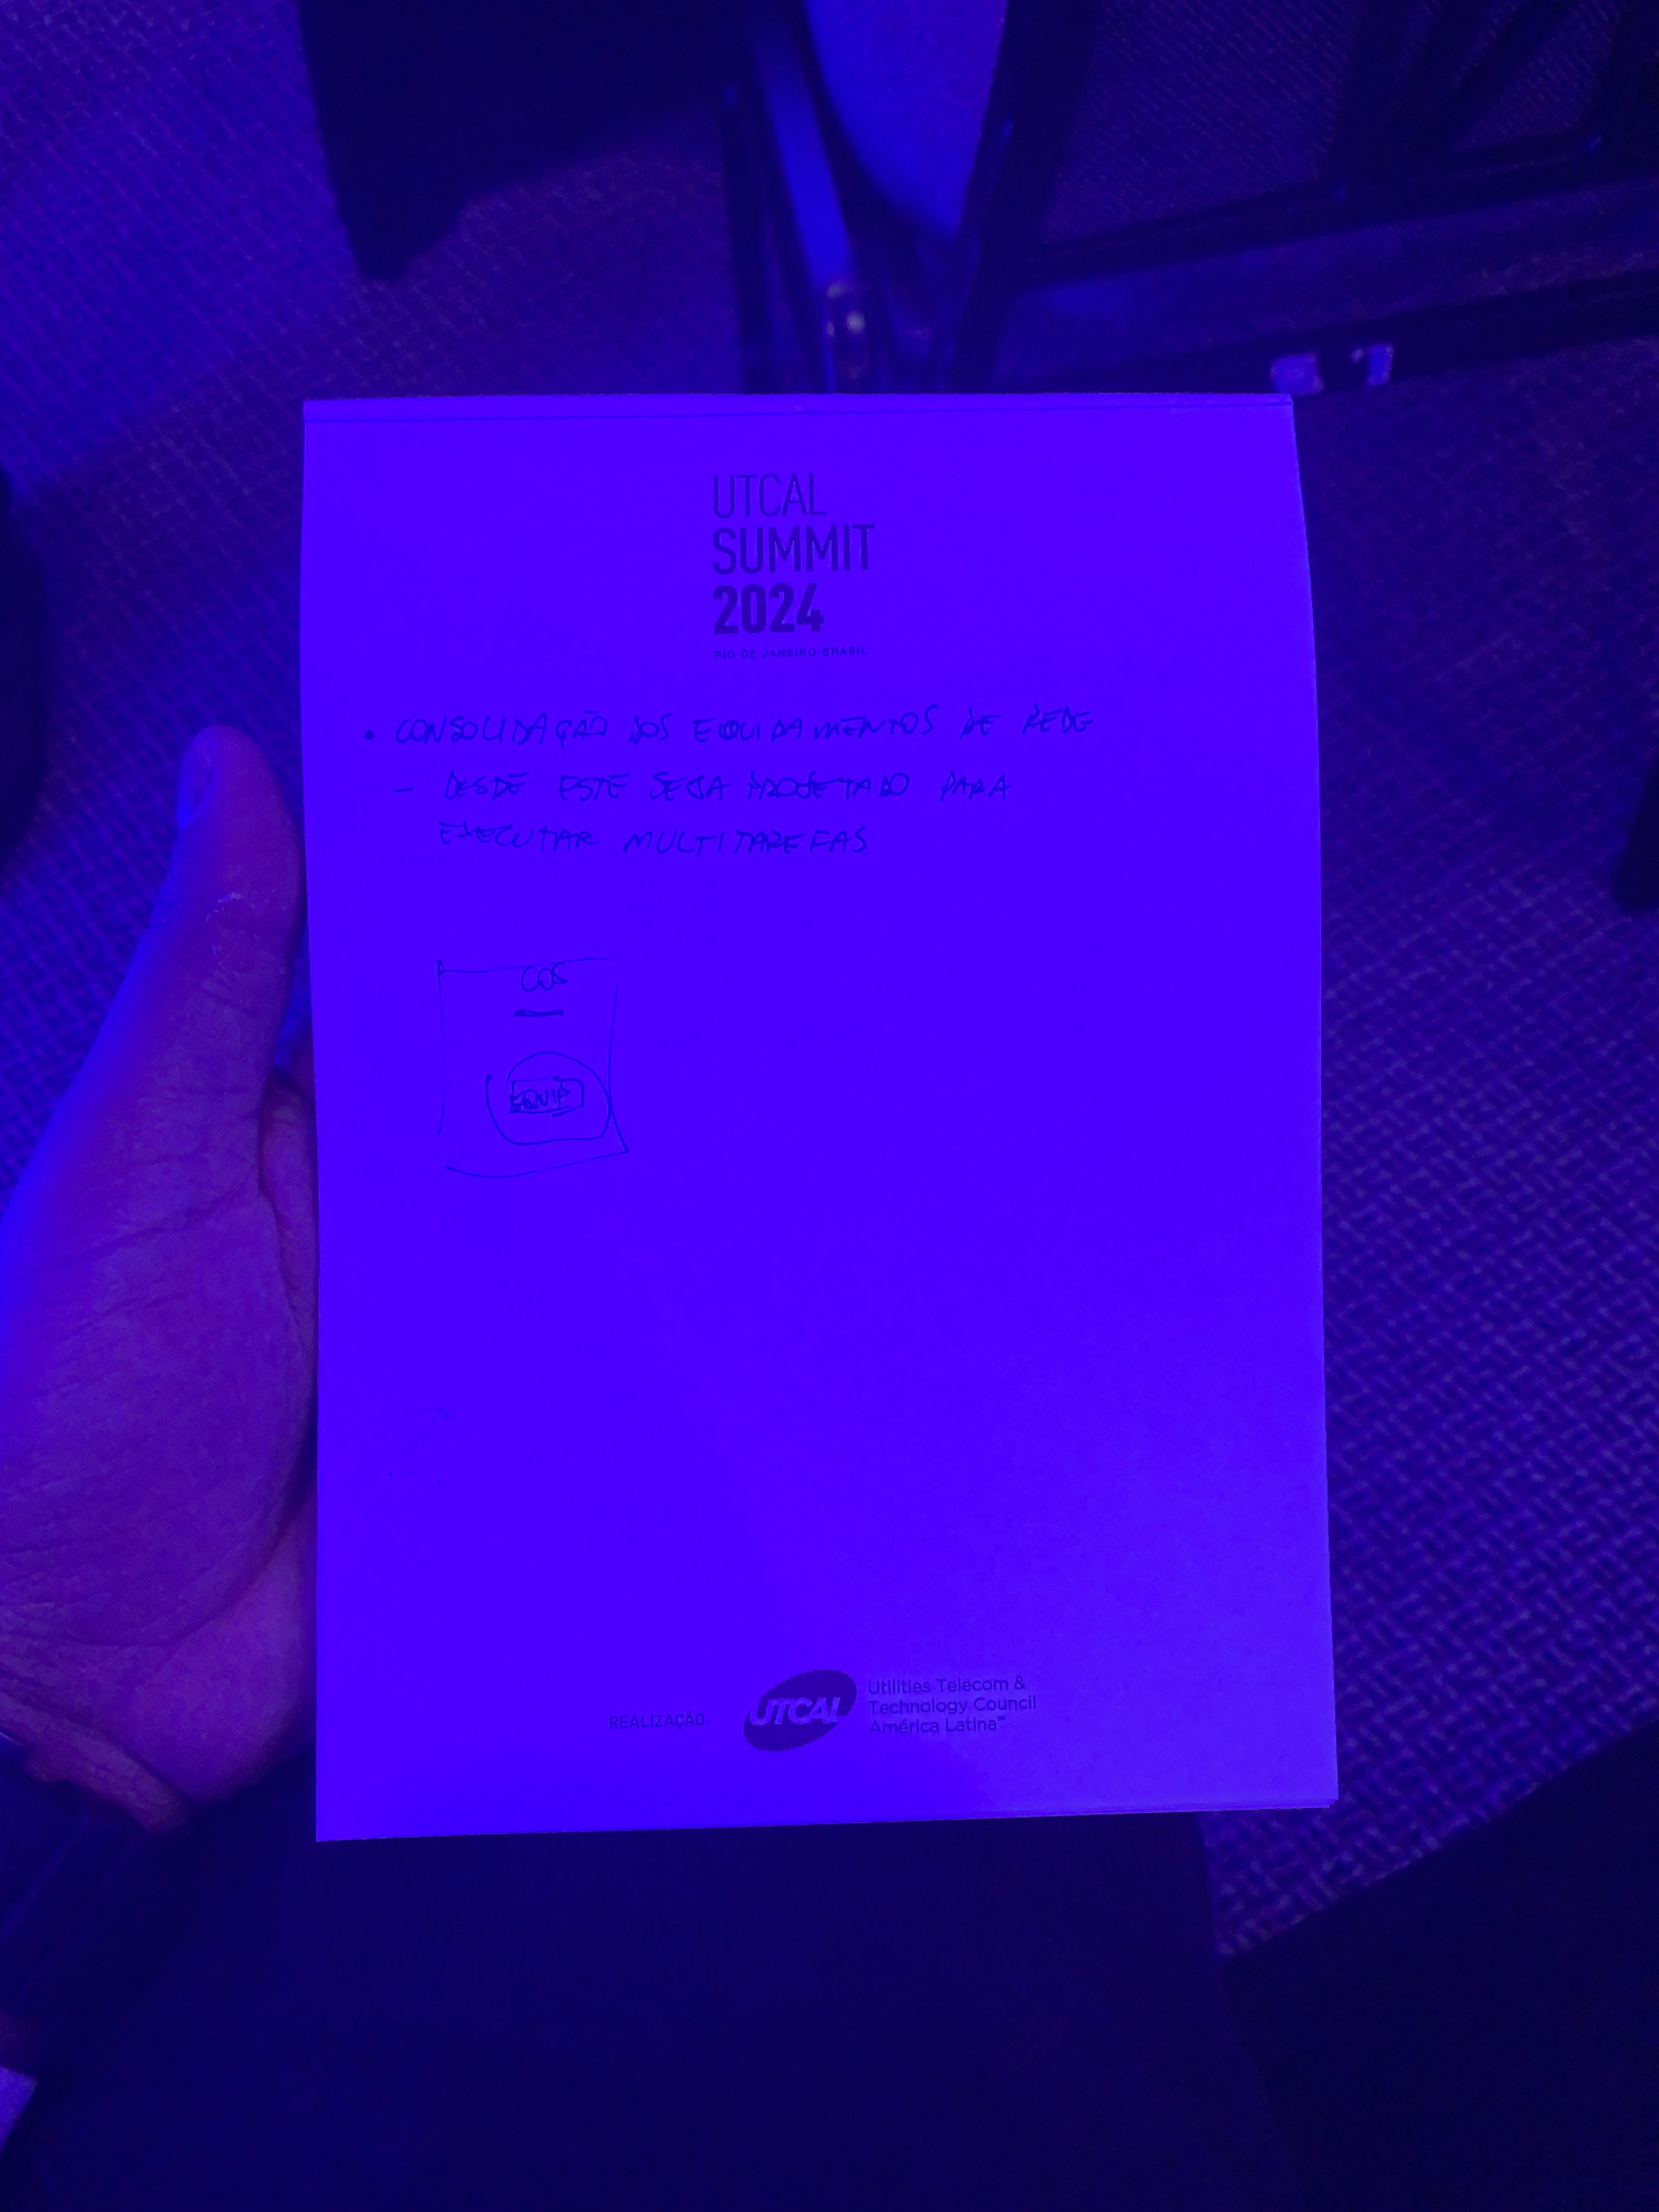 UTCAL
SUMMIT
2024
RIO DE JANEIRO-BRASIL
• CONSOLIDAÇÃO DOS EQUIPAMENTOS DE REDE
- DESDE ESTE SEJA PROJETADO PARA
EXECUTAR MULTITAREFAS
COS
EQUIP
REALIZAÇÃO:
UTCAL
Utilities Telecom &
Technology Council
América Latina℠